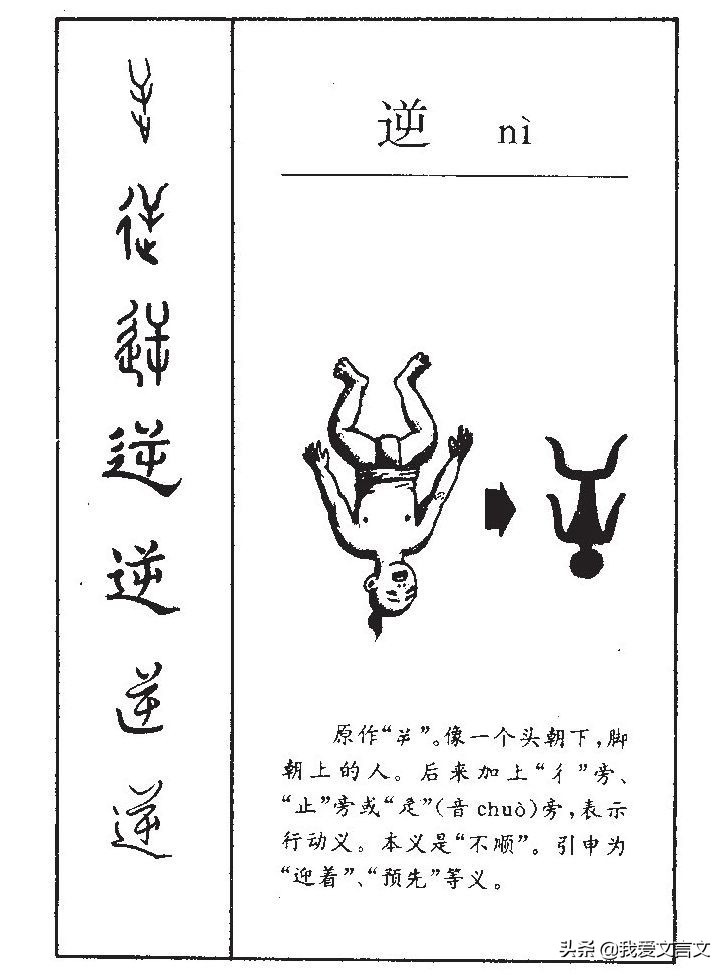 逆 nì
逆
逆
逆
逆
原作“屰”。像一个头朝下，脚
朝上的人。后来加上“彳”旁、
“止”旁或“辵”（音 chuò）旁，表示
行动义。本义是“不顺”。引申为
“迎着”、“预先”等义。
头条 @我爱文言文